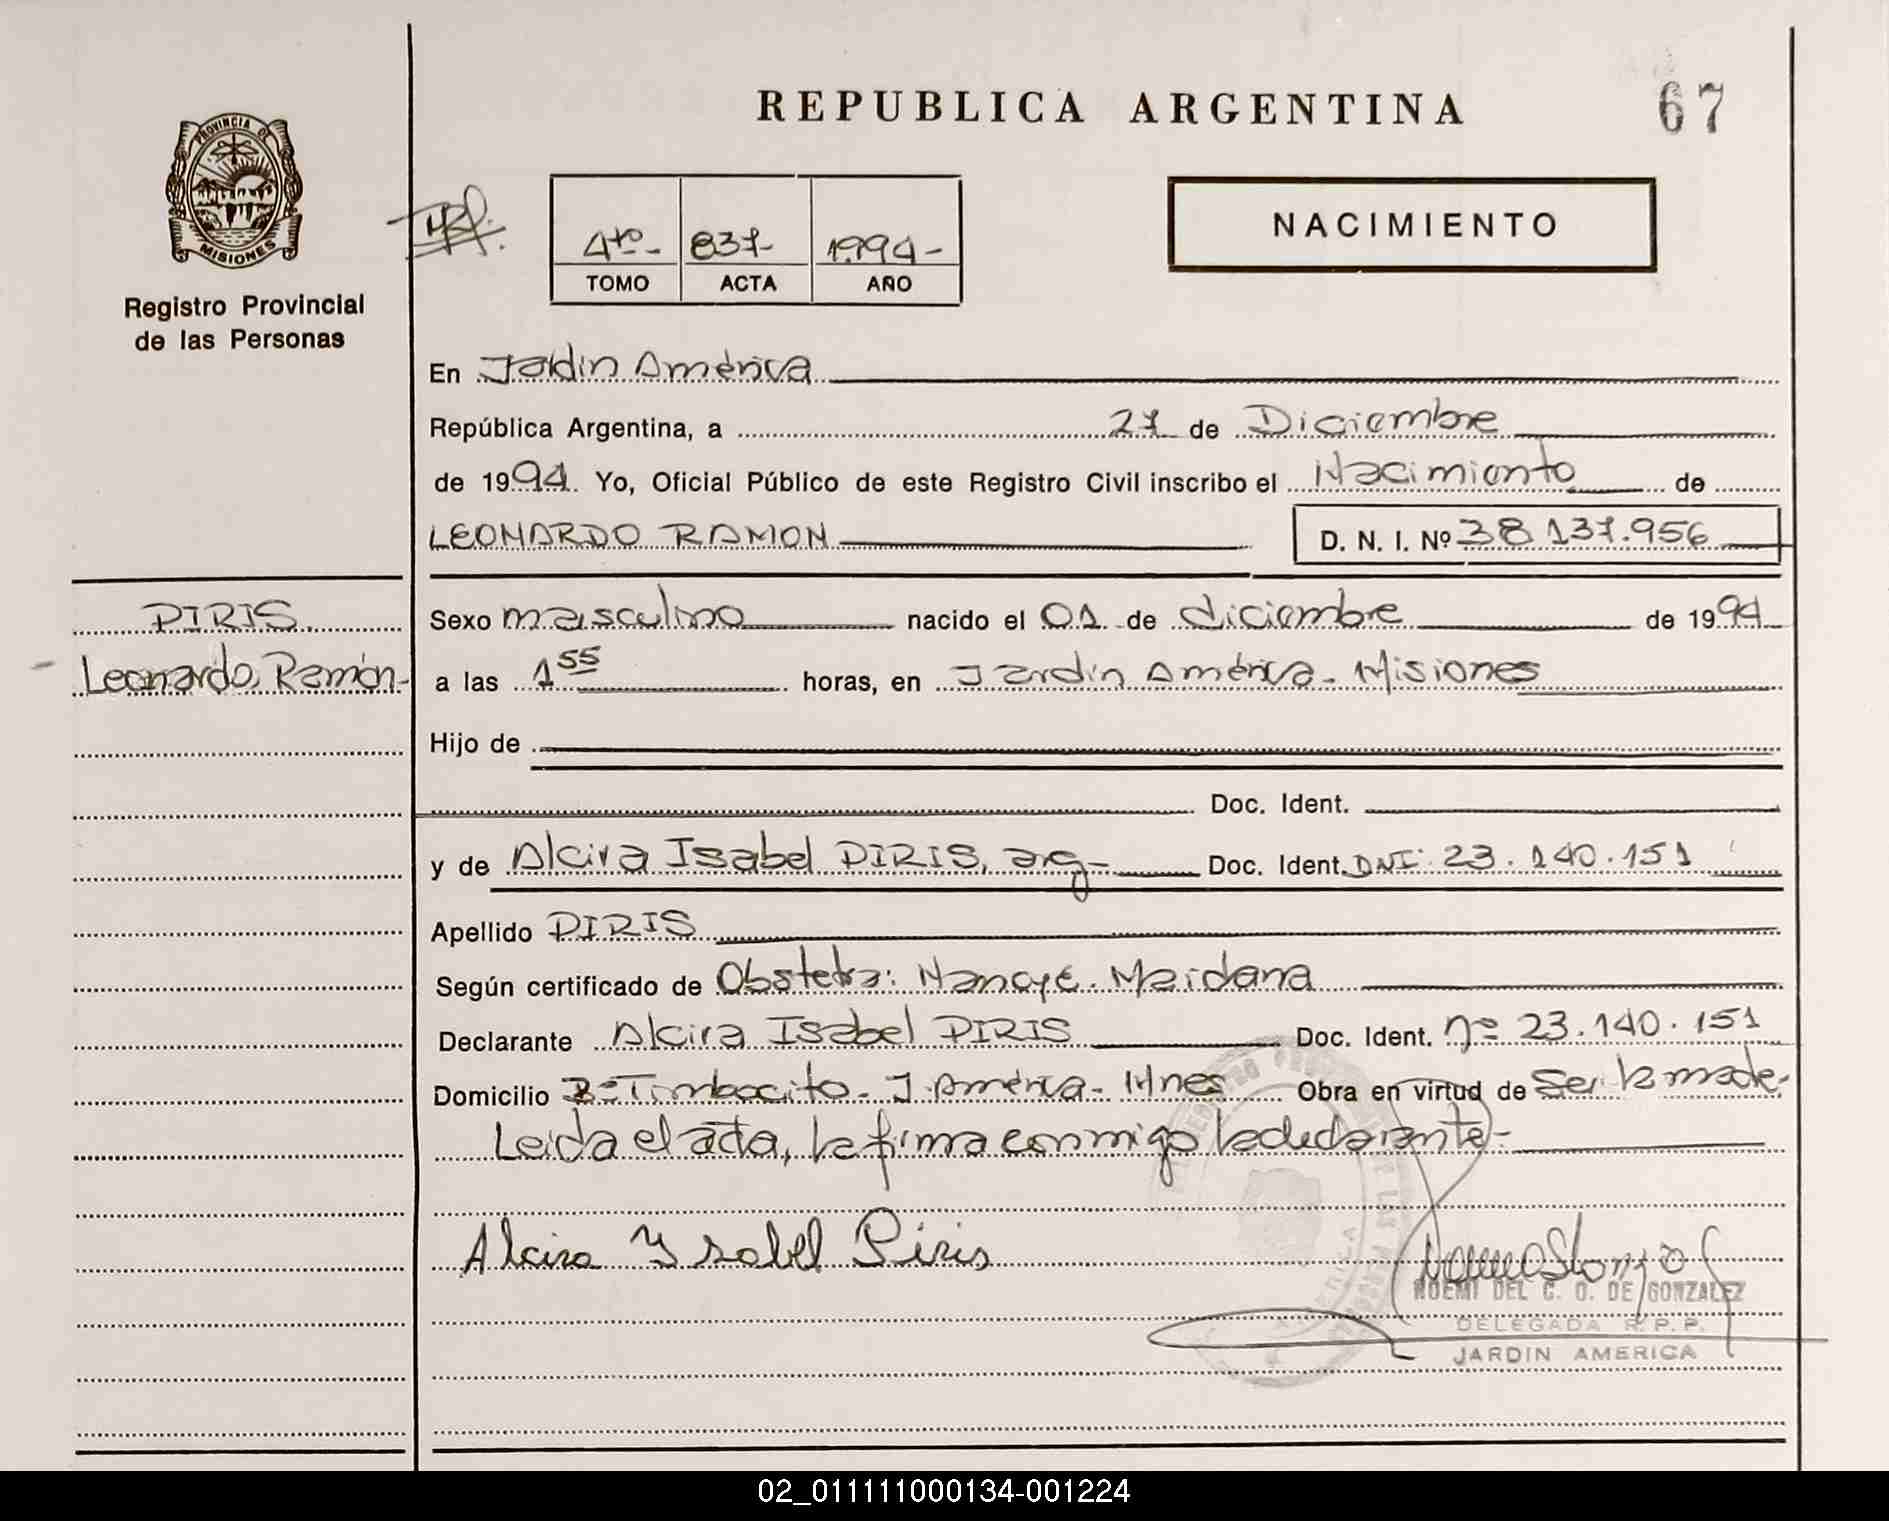 REPUBLICA ARGENTINA
67
PROVINCIA DE
MISIONES
Registro Provincial
de las Personas
4to- 837- 1994-
TOMO ACTA AÑO
NACIMIENTO
En Jardín América
República Argentina, a 27 de Diciembre
de 1994. Yo, Oficial Público de este Registro Civil inscribo el Nacimiento de
LEONARDO RAMON D. N. I. Nº 38.137.956
PIRIS.
Leonardo Ramón-
Sexo masculino nacido el 01 de diciembre de 1994
a las 1 55 horas, en Jardín América - Misiones
Hijo de
Doc. Ident.
y de Alcira Isabel PIRIS, arg- Doc. Ident. DNI: 23.140.151
Apellido PIRIS
Según certificado de Obstetra: Maidana
Declarante Alcira Isabel PIRIS Doc. Ident. nº 23.140.151
Domicilio Bº Timbocito - J. América - Mnes Obra en virtud de Ser la madre.
Leida el acta, la firma conmigo la declarante-
Alcira Ysabel Piris
NOEMI DEL C. O. DE GONZALEZ
DELEGADA R.P.P.
JARDIN AMERICA
02_011111000134-001224